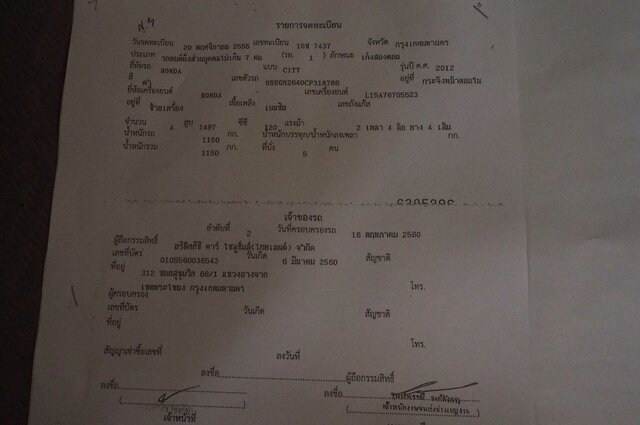 รายการจดทะเบียน
วันจดทะเบียน 20 พฤศจิกายน 2555 เลขทะเบียน 1กฮ 7437 จังหวัด กรุงเทพมหานคร
ประเภท รถยนต์นั่งส่วนบุคคลไม่เกิน 7 คน (รย. 1) ลักษณะ เก๋งสองตอน
ยี่ห้อรถ HONDA แบบ CITY รุ่นปี ค.ศ. 2012
สี ดำ เลขตัวรถ อยู่ที่
ยี่ห้อเครื่องยนต์ HONDA เลขเครื่องยนต์ L15A76755523
อยู่ที่ เชื้อเพลิง เบนซิน เลขถังแก๊ส
จำนวน 4 สูบ 1497 ซีซี 120 แรงม้า 2 เพลา 4 ล้อ ยาง 4 เส้น
น้ำหนักรถ 1150 กก. น้ำหนักบรรทุก/น้ำหนักลงเพลา กก.
น้ำหนักรวม 1150 กก. ที่นั่ง 5 คน
เจ้าของรถ
ลำดับที่ 2 วันที่ครอบครองรถ 16 พฤษภาคม 2560
ผู้ถือกรรมสิทธิ์ คาร์ โซลูชั่นส์(ไทยแลนด์) จำกัด
เลขที่บัตร 0105560036543 วันเกิด 6 มีนาคม 2560 สัญชาติ
ที่อยู่ 312 ซอยสุขุมวิท 66/1 แขวงบางจาก
เขตพระโขนง กรุงเทพมหานคร โทร.
ผู้ครอบครอง
เลขที่บัตร วันเกิด สัญชาติ
ที่อยู่
โทร.
สัญญาเช่าซื้อเลขที่ ลงวันที่
ลงชื่อ ผู้ถือกรรมสิทธิ์
ลงชื่อ ลงชื่อ
เจ้าหน้าที่